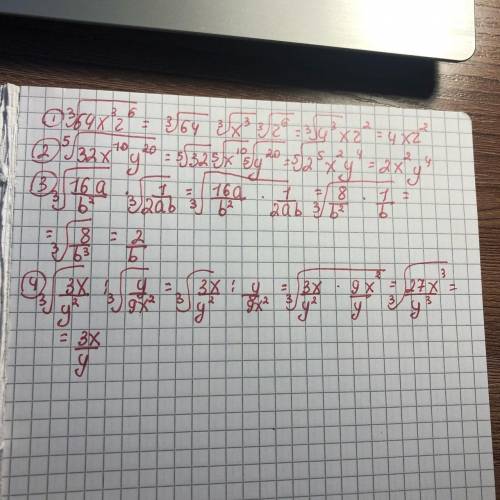 ① ∛(64x³z⁶) = ∛64 ∛x³ ∛z⁶ = ∛4³ xz² = 4xz²
② ⁵√(32x¹⁰y²⁰) = ⁵√32 ⁵√x¹⁰ ⁵√y²⁰ = ⁵√2⁵ x²y⁴ = 2x²y⁴
③ ∛(16a/b²) · ∛(1/2ab) = ∛(16a/b² · 1/2ab) = ∛(8/b² · 1/b) =
= ∛(8/b³) = 2/b
④ ∛(3x/y²) : ∛(y/9x²) = ∛(3x/y² : y/9x²) = ∛(3x/y² · 9x²/y) = ∛(27x³/y³) =
= 3x/y